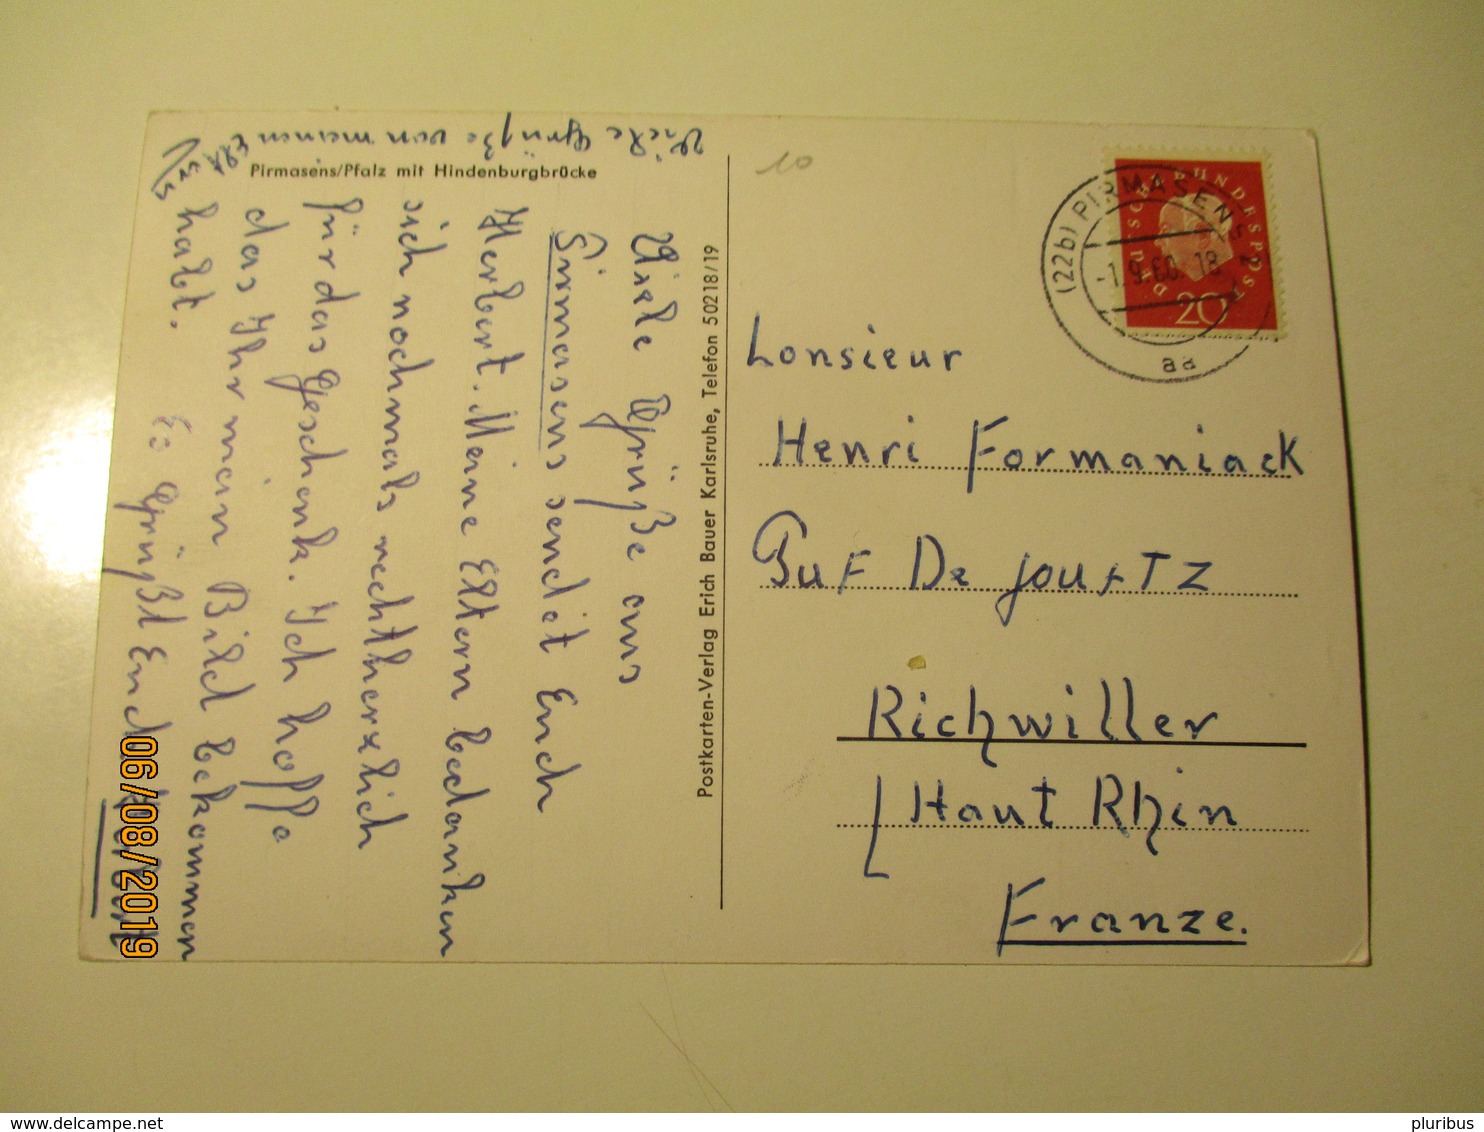 Pirmasens/Pfalz mit Hindenburgbrücke
Viele Grüße aus
Pirmasens sendet Euch
Herbert. Meine Eltern bedanken
sich nochmals recht herzlich
für das Geschenk. Ich hoffe
das Ihr mein Bild bekommen
habt. Es grüßt Euch
Herbert
Viele Grüße von meinen
Postkarten-Verlag Erich Bauer Karlsruhe, Telefon 50218/19
10
DEUTSCHE BUNDESPOST
20
(22b) PIRMASENS
-1.9.60.18
aa
Monsieur
Henri Formaniack
De
Richwiller
Haut Rhin
Franze.
06/08/2019
pluribus